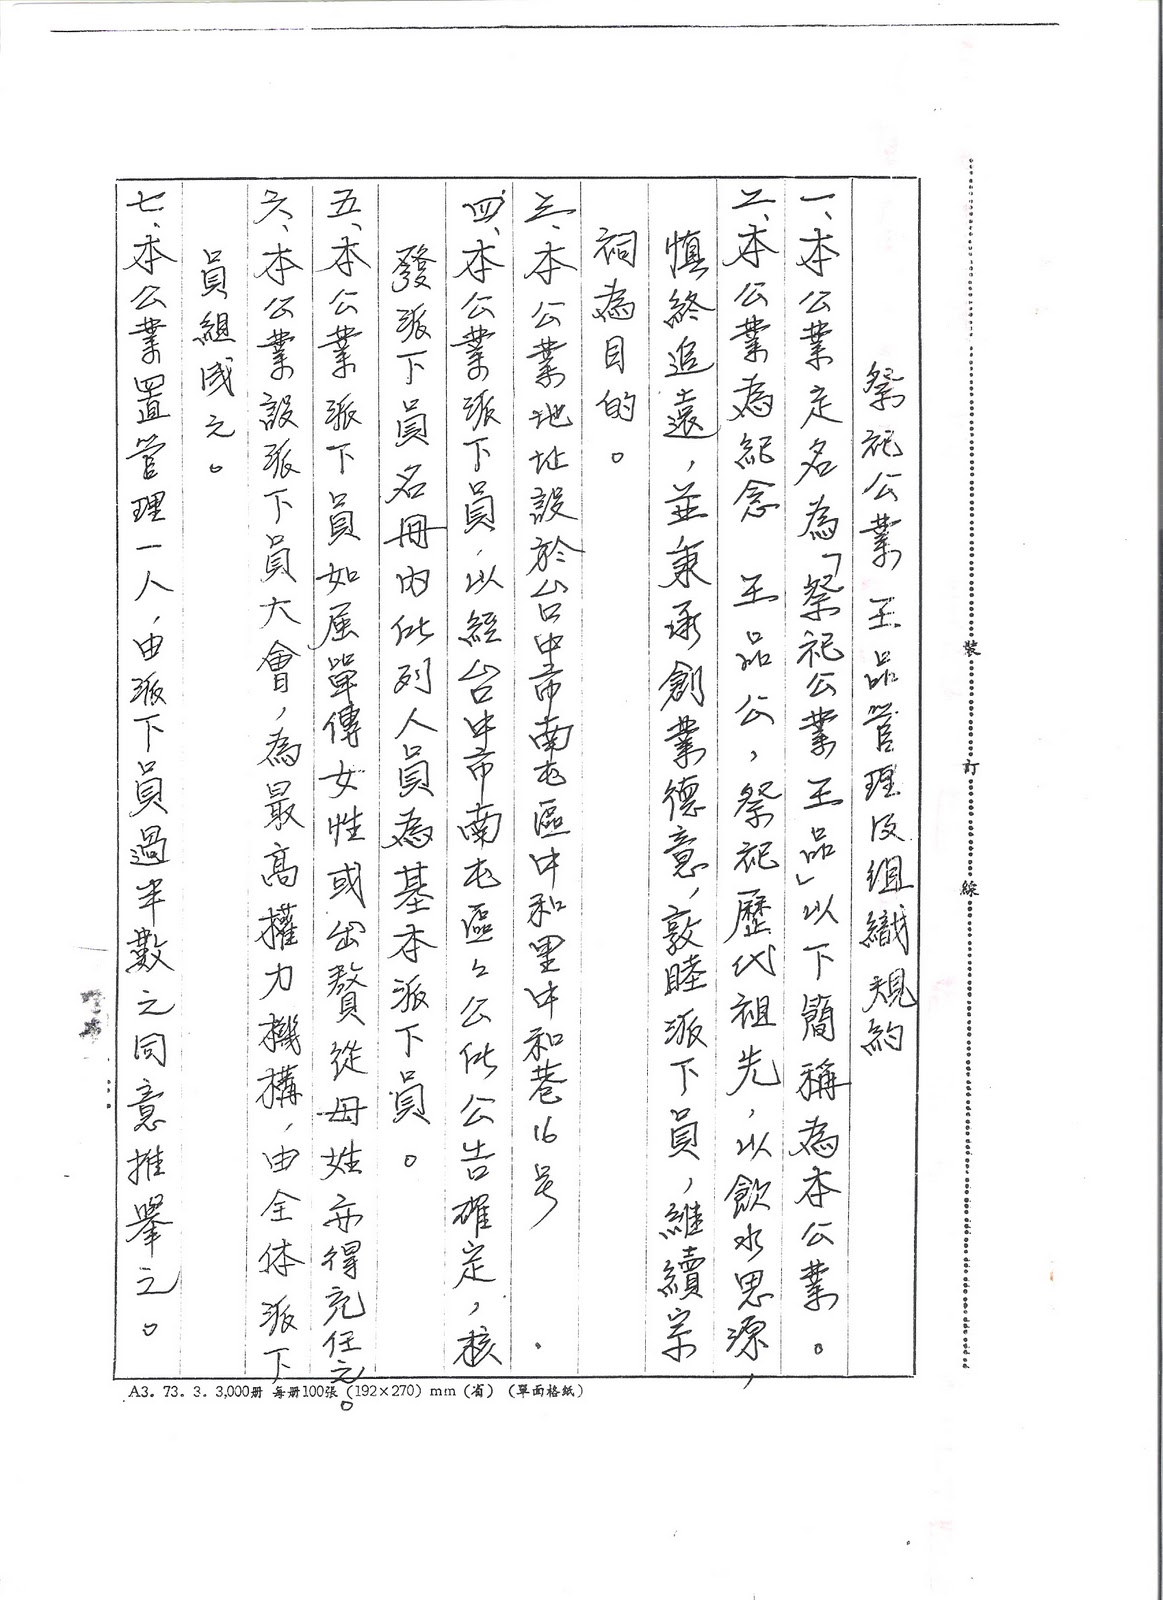 祭祀公業王品管理及組織規約
一、本公業定名為「祭祀公業王品」以下簡稱為本公業。
二、本公業為紀念 王品公，祭祀歷代祖先，以飲水思源，
慎終追遠，並秉承創業德意，敦睦派下員，維續宗
祠為目的。
三、本公業地址設於台中市南屯區中和里中和巷16号.
四、本公業派下員，以經台中市南屯區公所公告確定，核
發派下員名冊內所列人員為基本派下員。
五、本公業派下員如屬單傳女性或出贅從母姓亦得充任之。
六、本公業設派下員大會，為最高權力機構，由全体派下
員組成之。
七、本公業置管理一人，由派下員過半數之同意推舉之。
裝
訂
線
A3. 73. 3. 3,000册 每册100張 (192×270) mm (省) (單面格紙)